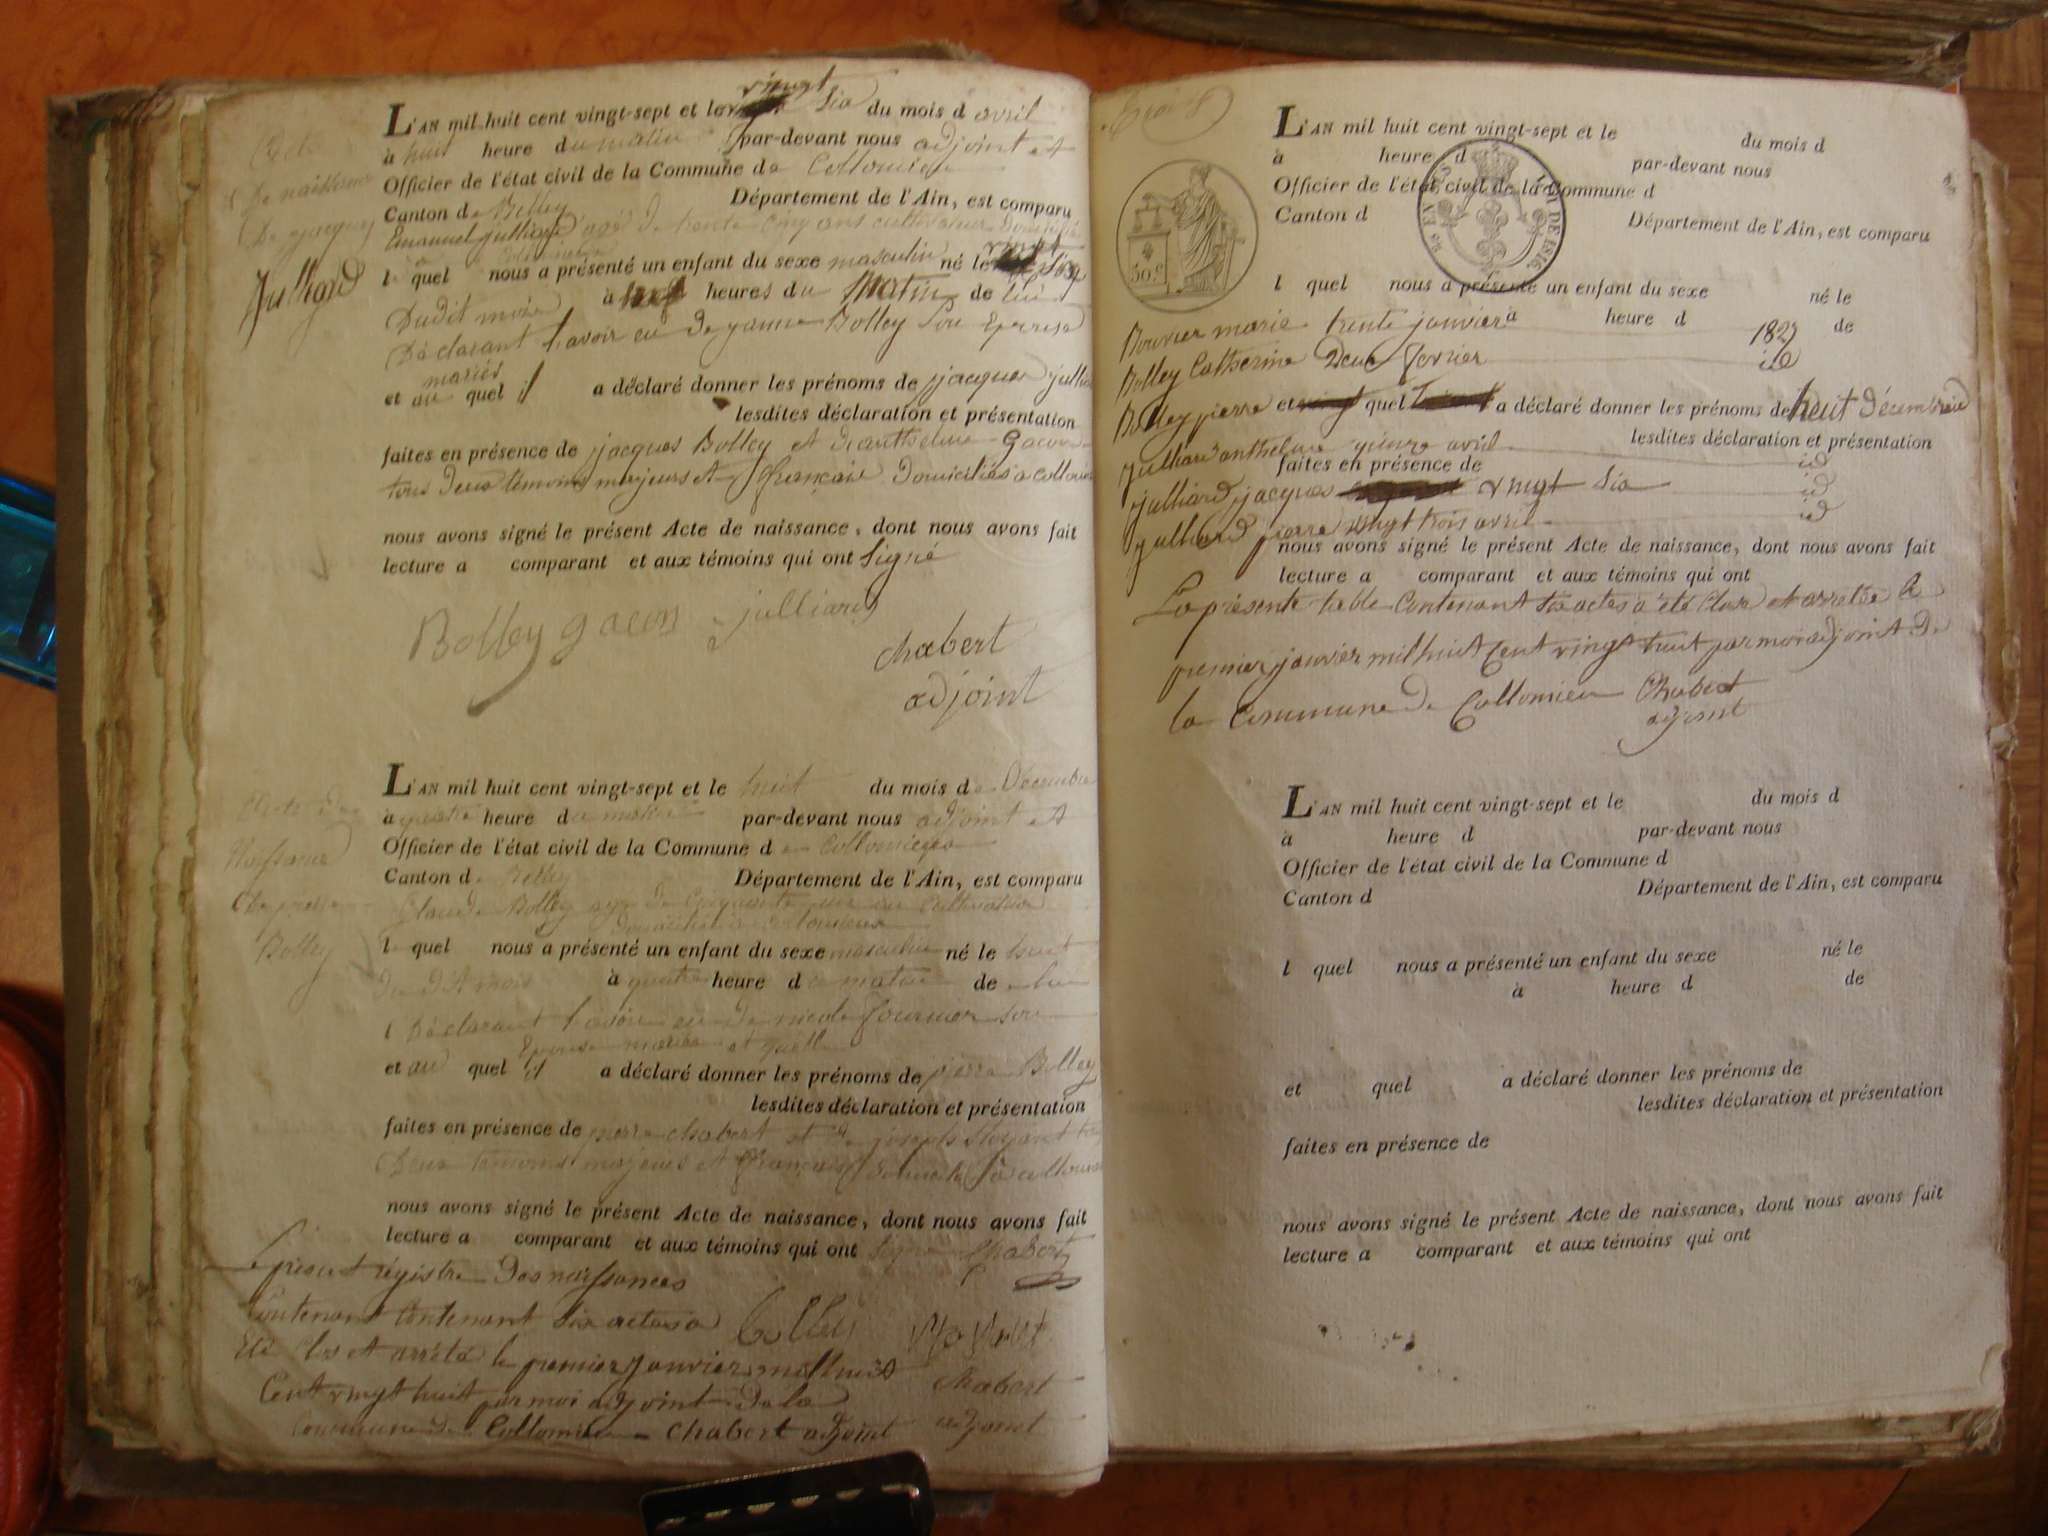 L'AN mil huit cent vingt-sept et le vingt six du mois d avril
à huit heure du matin par-devant nous adjoint et
Officier de l'état civil de la Commune de Collomieu
Canton de Belley Département de l'Ain, est comparu
Emanuel julliard agé de trente cinq ans cultivateur
l quel nous a présenté un enfant du sexe masculin né le vingt six
Dudit mois à heures du Matin de lui
Déclarant l'avoir eu de Bolley Son Epouse
mariés
et au quel il a déclaré donner les prénoms de jacques
lesdites déclaration et présentation
faites en présence de jacques Bolley et
tous deux témoins majeurs et français Domiciliés a
nous avons signé le présent Acte de naissance, dont nous avons fait
lecture a comparant et aux témoins qui ont signé
De naissance
De jacques
Julliard
Bolley gacon julliard
chabert
adjoint
L'AN mil huit cent vingt-sept et le huit du mois de Décembre
à quatre heure du matin par-devant nous adjoint et
Officier de l'état civil de la Commune de
Canton de Belley Département de l'Ain, est comparu
Claude Bolley cultivateur
l quel nous a présenté un enfant du sexe masculin né le huit
Dudit mois à quatre heure du matin de lui
Déclarant l'avoir eu de nicole fournier son
Epouse
et au quel il a déclaré donner les prénoms de pierre Bolley
lesdites déclaration et présentation
faites en présence de chabert et de joseph
Deux témoins majeurs et français
nous avons signé le présent Acte de naissance, dont nous avons fait
lecture a comparant et aux témoins qui ont signé Chabert
Acte de
Naissance
De pierre
Bolley
Le présent régistre Des naissances
Contenant six actes a
Eté Clos et arrété le premier janvier mil huit
Cent vingt huit par moi adjoint de la
Commune de Collomieu chabert adjoint
chabert
adjoint
50 c.
L'AN mil huit cent vingt-sept et le du mois d
à heure d par-devant nous
Officier de l'état civil de la Commune d
Canton d Département de l'Ain, est comparu
LOI DE 1816
l quel nous a présenté un enfant du sexe né le
à heure d de
Bouvier marie trente janvier 1827
Bolley Catherine Deux fevrier id
Bolley pierre huit décembre id
et quel a déclaré donner les prénoms de
lesdites déclaration et présentation
julliard anthelme avril id
faites en présence de
julliard jacques vingt six id
julliard pierre vingt trois avril id
nous avons signé le présent Acte de naissance, dont nous avons fait
lecture a comparant et aux témoins qui ont
La présente table Contenant six actes a été Close et arretée le
premier janvier mil huit Cent vingt huit par moi adjoint de
la Commune de Collomieu Chabert
adjoint
L'AN mil huit cent vingt-sept et le du mois d
à heure d par-devant nous
Officier de l'état civil de la Commune d
Canton d Département de l'Ain, est comparu
l quel nous a présenté un enfant du sexe né le
à heure d de
et quel a déclaré donner les prénoms de
lesdites déclaration et présentation
faites en présence de
nous avons signé le présent Acte de naissance, dont nous avons fait
lecture a comparant et aux témoins qui ont